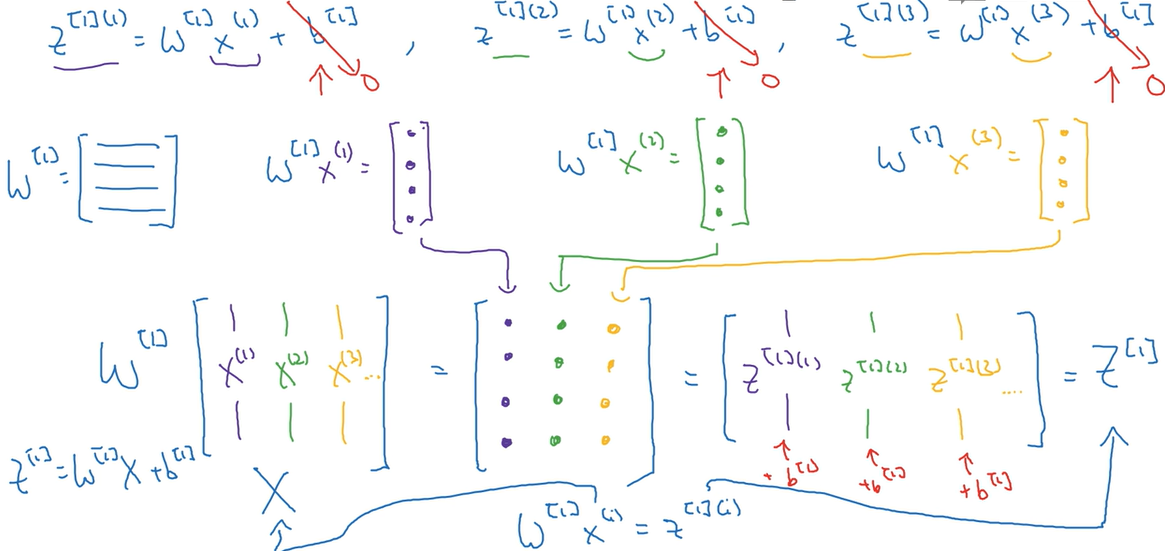 z^[1](1) = W^[1] x^(1) + b^[1] → 0 , z^[1](2) = W^[1] x^(2) + b^[1] → 0 , z^[1](3) = W^[1] x^(3) + b^[1] → 0
W^[1] = [ ] W^[1] x^(1) = [ ] W^[1] x^(2) = [ ] W^[1] x^(3) = [ ]
W^[1] [ x^(1) x^(2) x^(3) ... ] = [ ] = [ z^[1](1) z^[1](2) z^[1](3) .... ] = Z^[1]
+b^[1] +b^[1] +b^[1]
Z^[1] = W^[1] X + b^[1]
X
W^[1] x^(i) = z^[1](i)